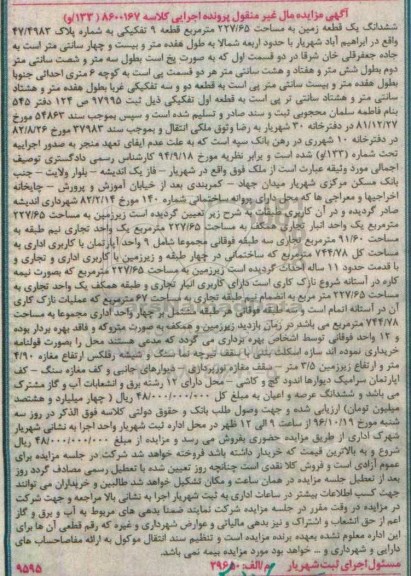 آگهی مزایده مال غیر منقول پرونده اجرایی کلاسه ۸۶۰۰۱۶۷ ( ۱۳۳/و)
ششدانگ یک قطعه زمین به مساحت ۲۲۷/۶۵ مترمربع قطعه ۹ تفکیکی به شماره پلاک ۴۷/۴۹۸۳
واقع در ابراهیم آباد شهریار با حدود اربعه شمالا به طول هفده متر و بیست و چهار سانتی متر است به
جاده جعفرقلی خان شرقا در دو قسمت اول که به صورت پخ است بطول سه متر و شصت سانتی متر
دوم بطول شش متر و هفتاد و هشت سانتی متر هر دو قسمت پی است به کوچه ۶ متری احداثی جنوبا
بطول هفده متر و بیست سانتی متر پی است به قطعه دو و سه تفکیکی غربا بطول هفده متر و هشتاد
سانتی متر و هشتاد سانتی تر پی است به قطعه اول تفکیکی ذیل ثبت ۹۷۹۹۵ ص ۱۲۴ دفتر ۵۴۵
بنام فاطمه سلمان محجوبی ثبت و سند صادر و تسلیم شده است و سپس بموجب سند ۵۴۸۶۳ مورخ
۸۱/۱۲/۲۷ در دفترخانه ۳۰ شهریار به رضا وثوق ملکی انتقال و بموجب سند ۳۷۹۸۳ مورخ ۸۲/۸/۲۶
در دفترخانه ۱۰ شهرری در رهن بانک سپه است که به علت عدم ایفای تعهد منجر به صدور اجراییه
تحت شماره (۱۳۳/و) شده است و برابر نظریه مورخ ۹۴/۹/۱۸ کارشناس رسمی دادگستری توصیف
اجمالی مورد وثیقه عبارت است از ملک فوق واقع در شهریار - فاز یک اندیشه - بلوار ولایت - جنب
بانک مسکن مرکزی شهریار میدان جهاد - کمربندی بعد از خیابان آموزش و پرورش - چاپخانه
اخراجیها و معراجی ها که محل دارای پروانه ساختمانی شماره ۱۴۰ مورخ ۸۲/۲/۱۴ شهرداری اندیشه
صادر گردیده و در آن کاربری طبقات به شرح زیر تعیین گردیده است زیرزمین به مساحت ۲۲۷/۶۵
مترمربع یک واحد انبار تجاری همکف به مساحت ۲۲۷/۶۵ مترمربع یک واحد تجاری نیم طبقه به
مساحت ۹۱/۶۰ مترمربع تجاری سه طبقه فوقانی مجموعا شامل ۹ واحد آپارتمان با کاربری اداری به
مساحت کل ۷۴۴/۷۸ مترمربع که ساختمانی در چهار طبقه و زیرزمین با کاربری اداری و تجاری و
با قدمت حدود ۱۱ ساله احداث گردیده است زیرزمین به مساحت ۲۲۷/۶۵ مترمربع که بصورت نیمه
کاره در آستانه شروع نازک کاری است دارای کاربری انبار تجاری و طبقه همکف یک واحد تجاری به
مساحت ۲۲۷/۶۵ متر مربع به انضمام نیم طبقه تجاری به مساحت ۶۷ مترمربع که عملیات نازک کاری
آن در آستانه اتمام است و سه طبقه فوقانی هر طبقه مشتمل بر چهار واحد اداری مجموعا به مساحت
۷۴۴/۷۸ مترمربع می باشد در زمان بازدید زیرزمین و همکف به صورت متروکه و فاقد بهره بردار بوده
و ۱۲ واحد فوقانی توسط اشخاص بهره برداری می گردد که مدعی هستند محل را بصورت قولنامه
خریداری نموده اند سازه اسکلت بتنی با سقف تیرچه نما سنگ و شیشه رفلکس ارتفاع مغازه ۴/۹۰
متر و ارتفاع زیرزمین ۳/۵ متر - سقف مغازه نورپردازی - دیوارهای جانبی و کف مغازه سنگ - کف
آپارتمان سرامیک دیوارها اندود گچ و کاشی - محل دارای ۱۲ رشته برق و انشعابات آب و گاز مشترک
می باشد و ششدانگ عرصه و اعیان به مبلغ کل ۴۸/۰۰۰/۰۰۰/۰۰۰ ریال ( چهار میلیارد و هشتصد
میلیون تومان) ارزیابی شده و جهت وصول طلب بانک و حقوق دولتی کلاسه فوق الذکر در روز سه
شنبه مورخ ۹۶/۱۰/۱۹ از ساعت ۹ الی ۱۲ ظهر در محل اداره ثبت شهریار واحد اجرا به نشانی شهریار
شهرک اداری از طریق مزایده حضوری بفروش می رسد و مزایده از مبلغ ۴۸/۰۰۰/۰۰۰/۰۰۰ ریال
شروع و به بالاترین قیمت که خریدار داشته باشد فروخته خواهد شد شرکت در جلسه مزایده برای
عموم آزادی است و فروش کلا نقدی است چنانچه روز تعیین شده با تعطیل رسمی مصادف گردد روز
بعد از تعطیل جلسه مزایده در همان ساعت و مکان تشکیل خواهد شد طالبین و خریداران می توانند
جهت کسب اطلاعات بیشتر در ساعات اداری به ثبت شهریار اجرا به نشانی بالا مراجعه و جهت شرکت
در مزایده در وقت مقرر در جلسه مزایده شرکت نمایند ضمنا بدهی های مربوط به آب و برق و گاز
اعم از حق انشعاب و اشتراک و نیز بدهی مالیاتی و عوارض شهرداری و غیره که رقم قطعی آن ها برای
این اداره معلوم نشده بعهده برنده مزایده است و تنظیم سند انتقال موکول به ارائه مفاصاحساب های
دارایی و شهرداری و ... خواهد بود مورد مزایده بیمه نمی باشد.
مسئول اجرای ثبت شهریار م/الف: ۲۹۶۵۰ ۹۵۹۵